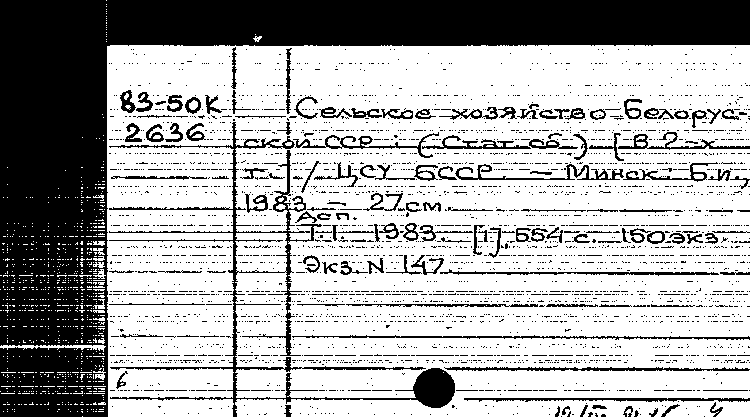 83-50К
2636
Сельское хозяйство Белорус-
ской ССР : (Стат. сб.) [В 2-х
т.] / ЦСУ БССР. — Минск : Б.и.,
1983. — 27 см.
Асп.
Т.1. 1983. [1], 554 с. 150 экз.
Экз. N 147.
6